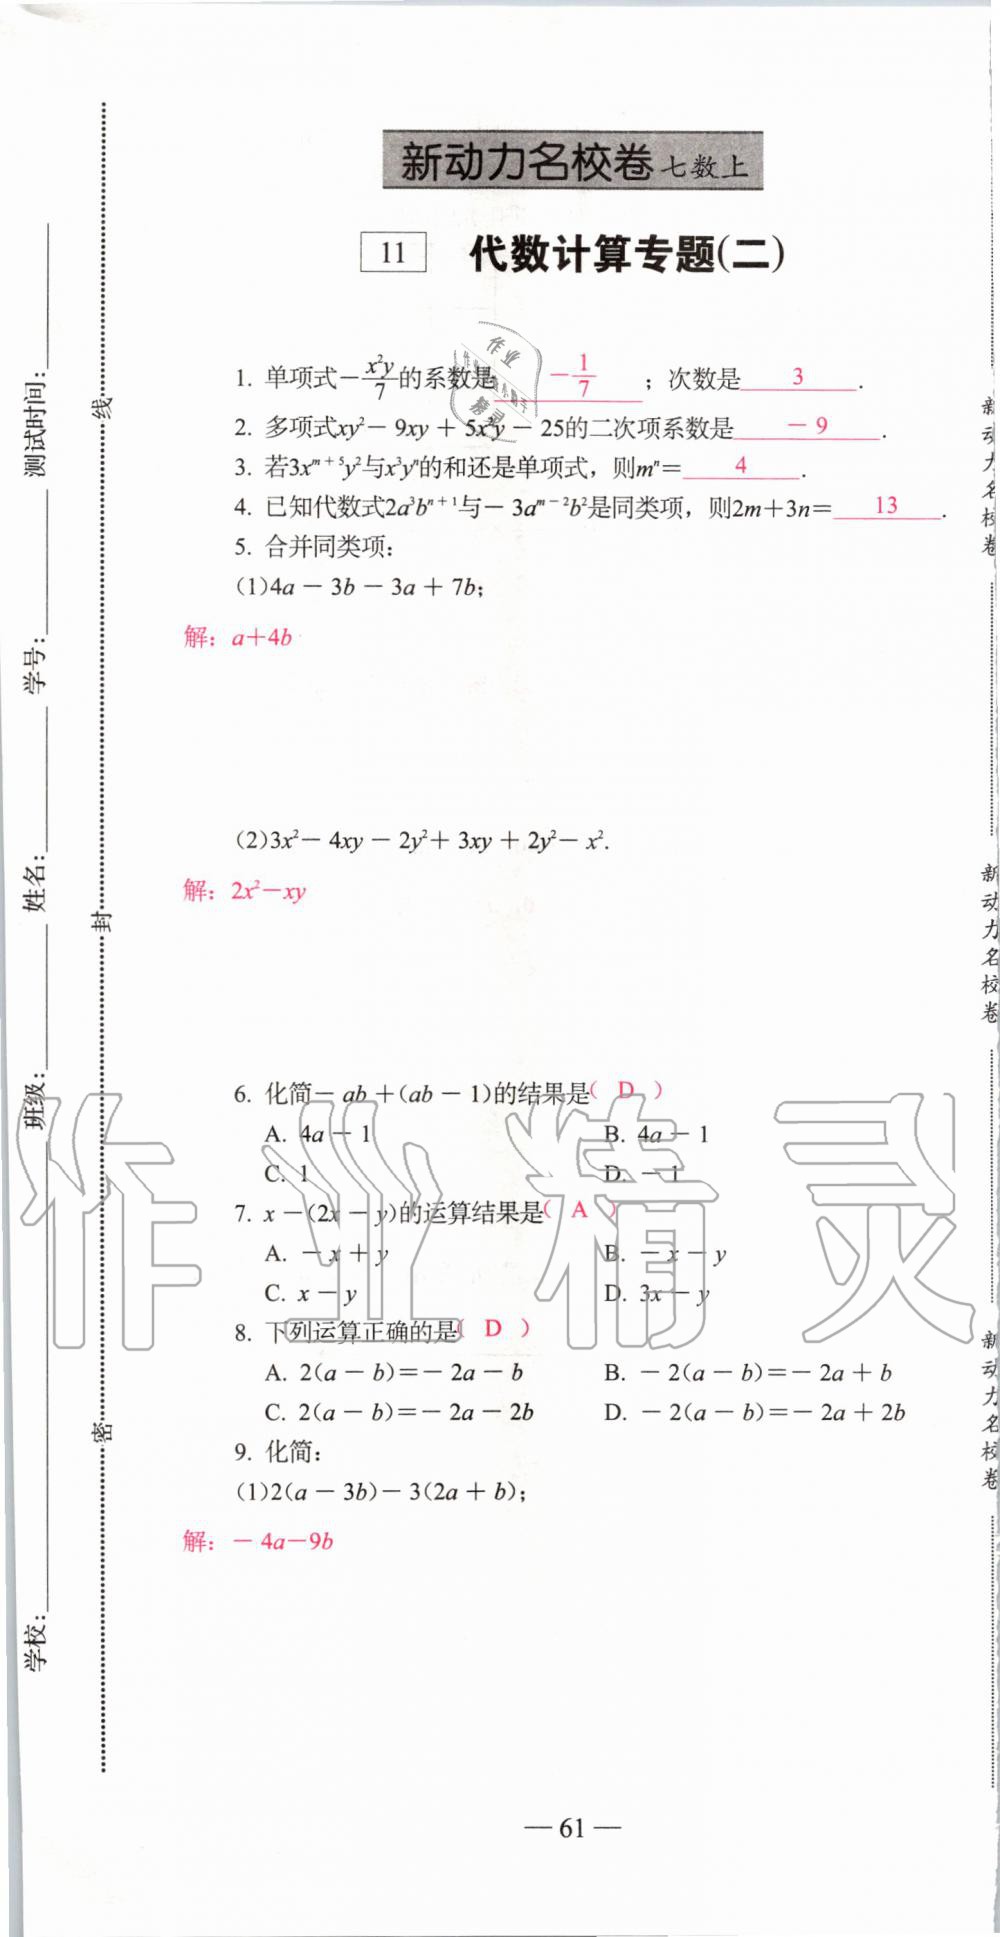 新动力名校卷 七数上
11 代数计算专题(二)
1. 单项式－x²y/7的系数是 －1/7 ；次数是 3 .
2. 多项式xy²－9xy＋5x²y－25的二次项系数是 －9 .
3. 若3xᵐ⁺⁵y²与x³yⁿ的和还是单项式，则mⁿ＝ 4 .
4. 已知代数式2a³bⁿ⁺¹与－3aᵐ⁻²b²是同类项，则2m＋3n＝ 13 .
5. 合并同类项：
(1)4a－3b－3a＋7b；
解：a＋4b
(2)3x²－4xy－2y²＋3xy＋2y²－x².
解：2x²－xy
6. 化简－ab＋(ab－1)的结果是( D )
A. 4a－1 B. 4a－1
C. 1 D. －1
7. x－(2x－y)的运算结果是( A )
A. －x＋y B. －x－y
C. x－y D. 3x－y
8. 下列运算正确的是( D )
A. 2(a－b)＝－2a－b B. －2(a－b)＝－2a＋b
C. 2(a－b)＝－2a－2b D. －2(a－b)＝－2a＋2b
9. 化简：
(1)2(a－3b)－3(2a＋b)；
解：－4a－9b
— 61 —
学校： 班级： 姓名： 学号： 测试时间：
密 封 线
新动力名校卷
新动力名校卷
新动力名校卷
作业精灵
作业
精灵